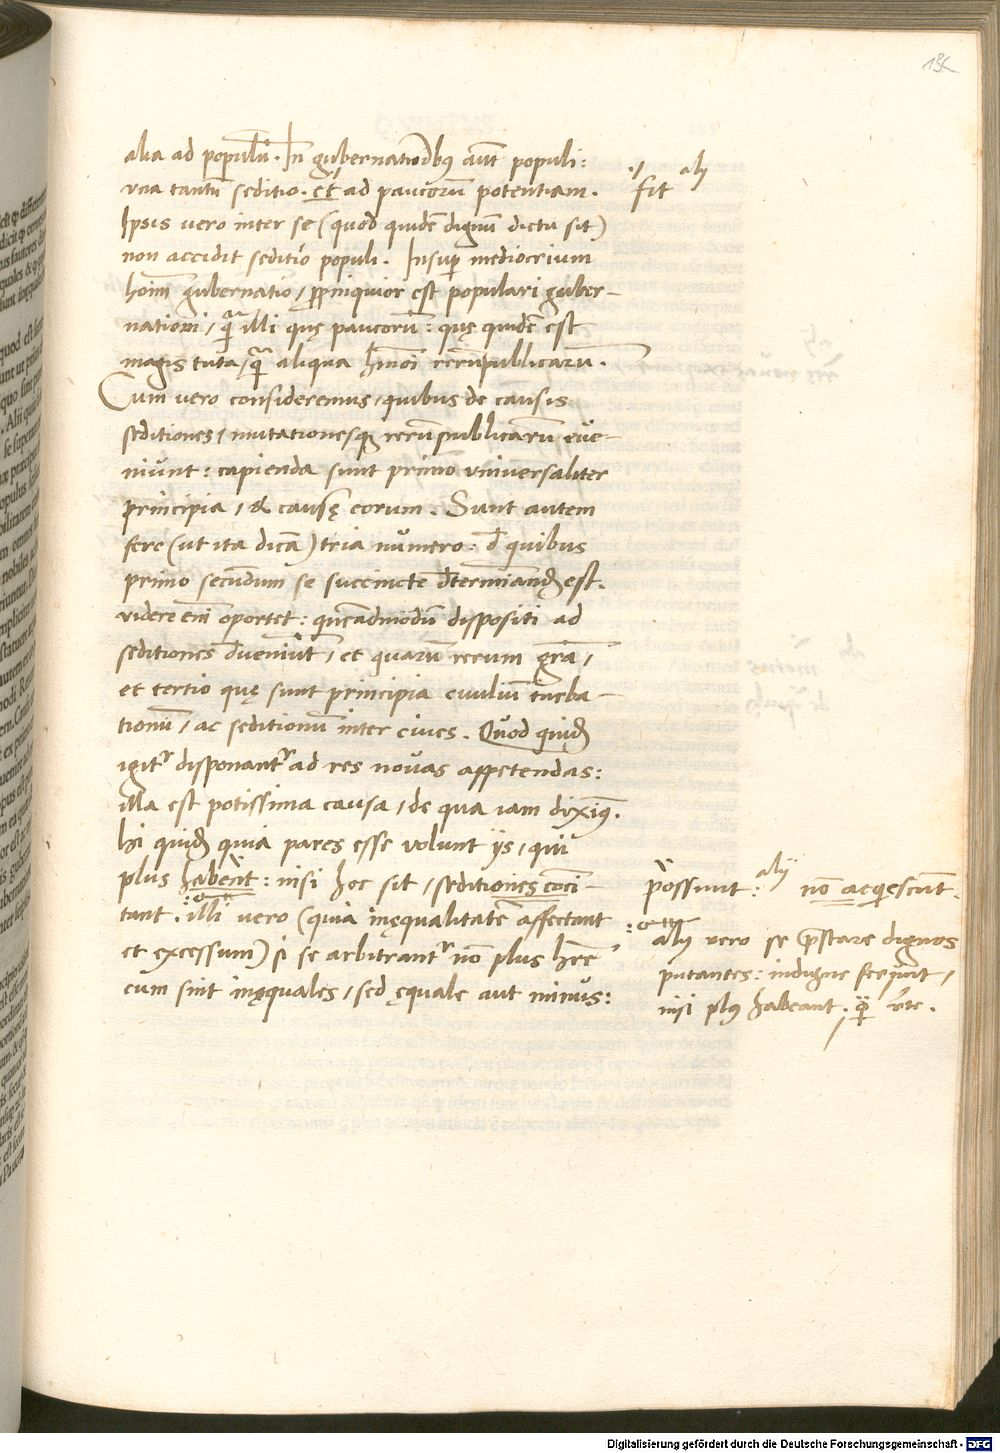 alia ad populū. In gubernatiōibus aūt populi:
vna tantū seditio. et ad paucorū potentiam.
Ipsis vero inter se (quod quidē dignū dictu sit)
non accidit seditio populi. Insup mediocrium
homīn gubernatio / propinquior est populari guber-
nationi / quā illi quę paucorū: quę quidē est
magis tuta / quā aliqua hmōi rerūpublicarū.
Cum vero consideremus / quibus de causis
seditiones / mutationesq; rerūpublicarū eve-
niunt: capienda sunt primo vniversaliter
principia / & causę eorum. Sunt autem
fere (ut ita dicā) tria numero: d quibus
primo secundum se succincte dtermīand est.
videre enī oportet: quēadmodū dispositi ad
seditiones dveniūt / et quarū rerum grā /
et tertio quę sunt principia civiliū turba-
tionū / ac seditionū inter cives. Quod quid
igitr disponantr ad res novas appetendas:
illa est potissima causa / de qua iam dixim9.
hi quid quia pares esse volunt ijs / qui
plus habent: nisi hoc sit / seditiones conci-
tant. illi vero (quia inęqualitatē affectant
et excessum) si se arbitrantr nō plus hrē
cum sint inęquales / sed ęquale aut minus:
fit alij
possunt: alij nō aeqescūt.
alij vero se pstare dignos
putantes: indigne ferunt /
nisi pl9 habeant.